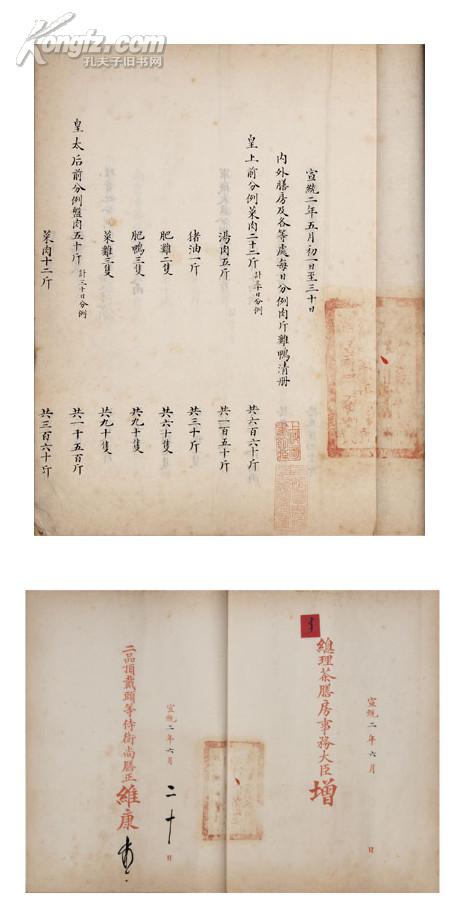 Kongfz.com
孔夫子旧书网
宣統二年五月初一日至三十日
內外膳房及各等處每日分例肉斤雞鴨清册
皇上前分例菜肉二十二斤 計三十日分例 共六百六十斤
湯肉五斤 共一百五十斤
猪油一斤 共三十斤
肥雞二隻 共六十隻
肥鴨三隻 共九十隻
菜雞三隻 共九十隻
皇太后前分例盤肉五十斤 計三十日分例 共一千五百斤
菜肉十二斤 共三百六十斤
宣統二年六月 日
總理茶膳房事務大臣增
宣統二年六月二十日
二品頂戴頭等侍衛尚膳正維康